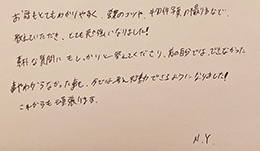 お話もとてもわかりやすく、習題のコツや、千問体字集の振りまなど、
教えていただき、とても勉強になりました!
素朴な質問にもしっかりと答えてくださり、前の自分では、できなかった
事やわからなかった事も、今では考え行動できるようになりました!
これからも頑張ります。
N.Y